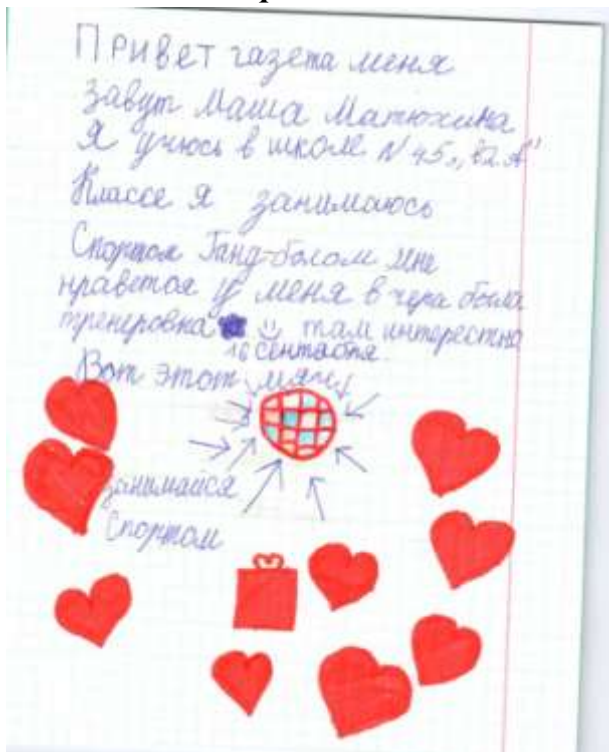 Привет газета меня
Завут Маша Матюхина
Я учусь в школе №45 „в2 А"
Классе я занимаюсь
Спортом Ганд-болом мне
нравется у меня в чера была
тренеровка там интерестно
16 сентября
Вот этот мяч
занимайся
Спортом